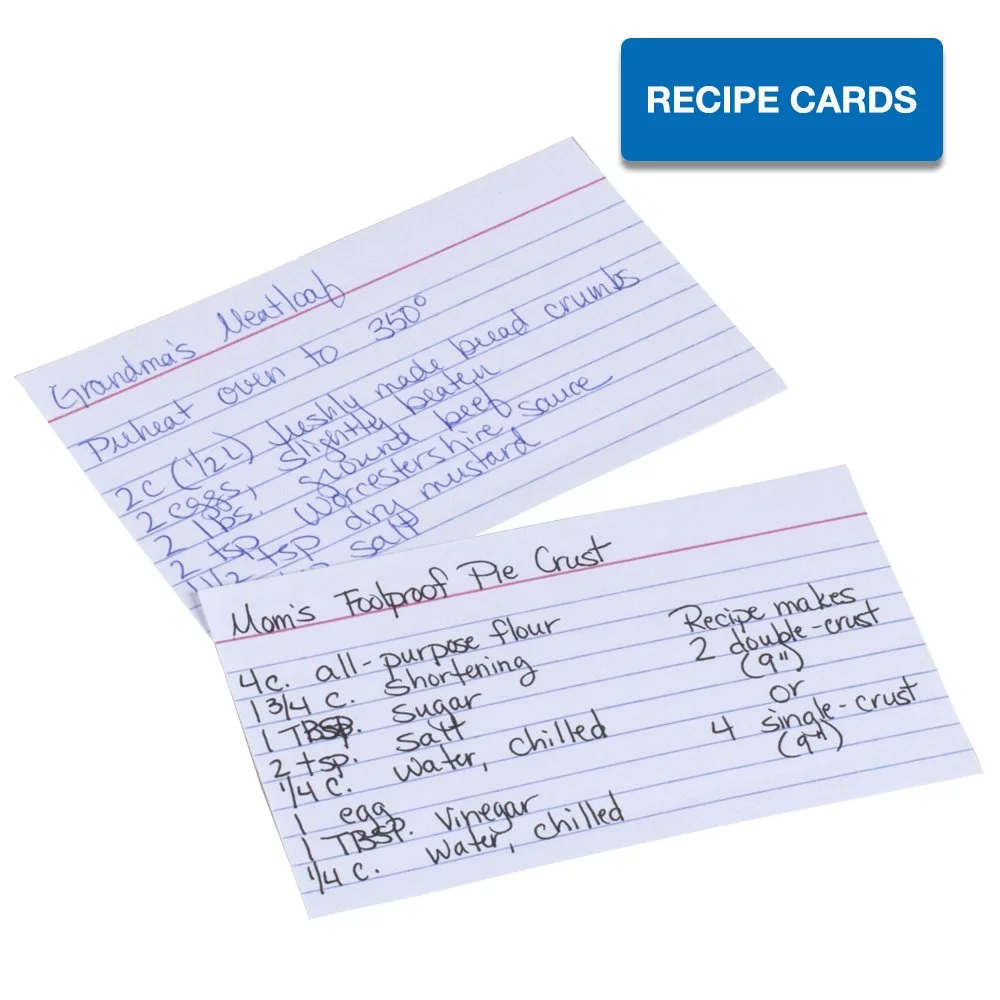 RECIPE CARDS
Grandma's Meatloaf
Preheat oven to 350°
2c (1/2L) freshly made bread crumbs
2 eggs, slightly beaten
2 lbs. ground beef
2 tsp Worcestershire sauce
1 1/2 tsp dry mustard
salt
Mom's Foolproof Pie Crust
4c. all-purpose flour
1 3/4 c. shortening
1 TBSP. sugar
2 tsp. salt
1/4 c. water, chilled
1 egg
1 TBSP. vinegar
1/4 c. water, chilled
Recipe makes
2 double-crust
(9")
or
4 single-crust
(9")